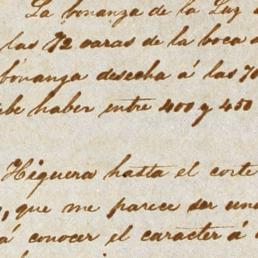 La bonanza de la Luz
las 72 varas de la boca
bonanza desecha á las 70
be haber entre 400 y 450
Higuera hasta el corte
, que me parece ser una
á conocer el caracter á